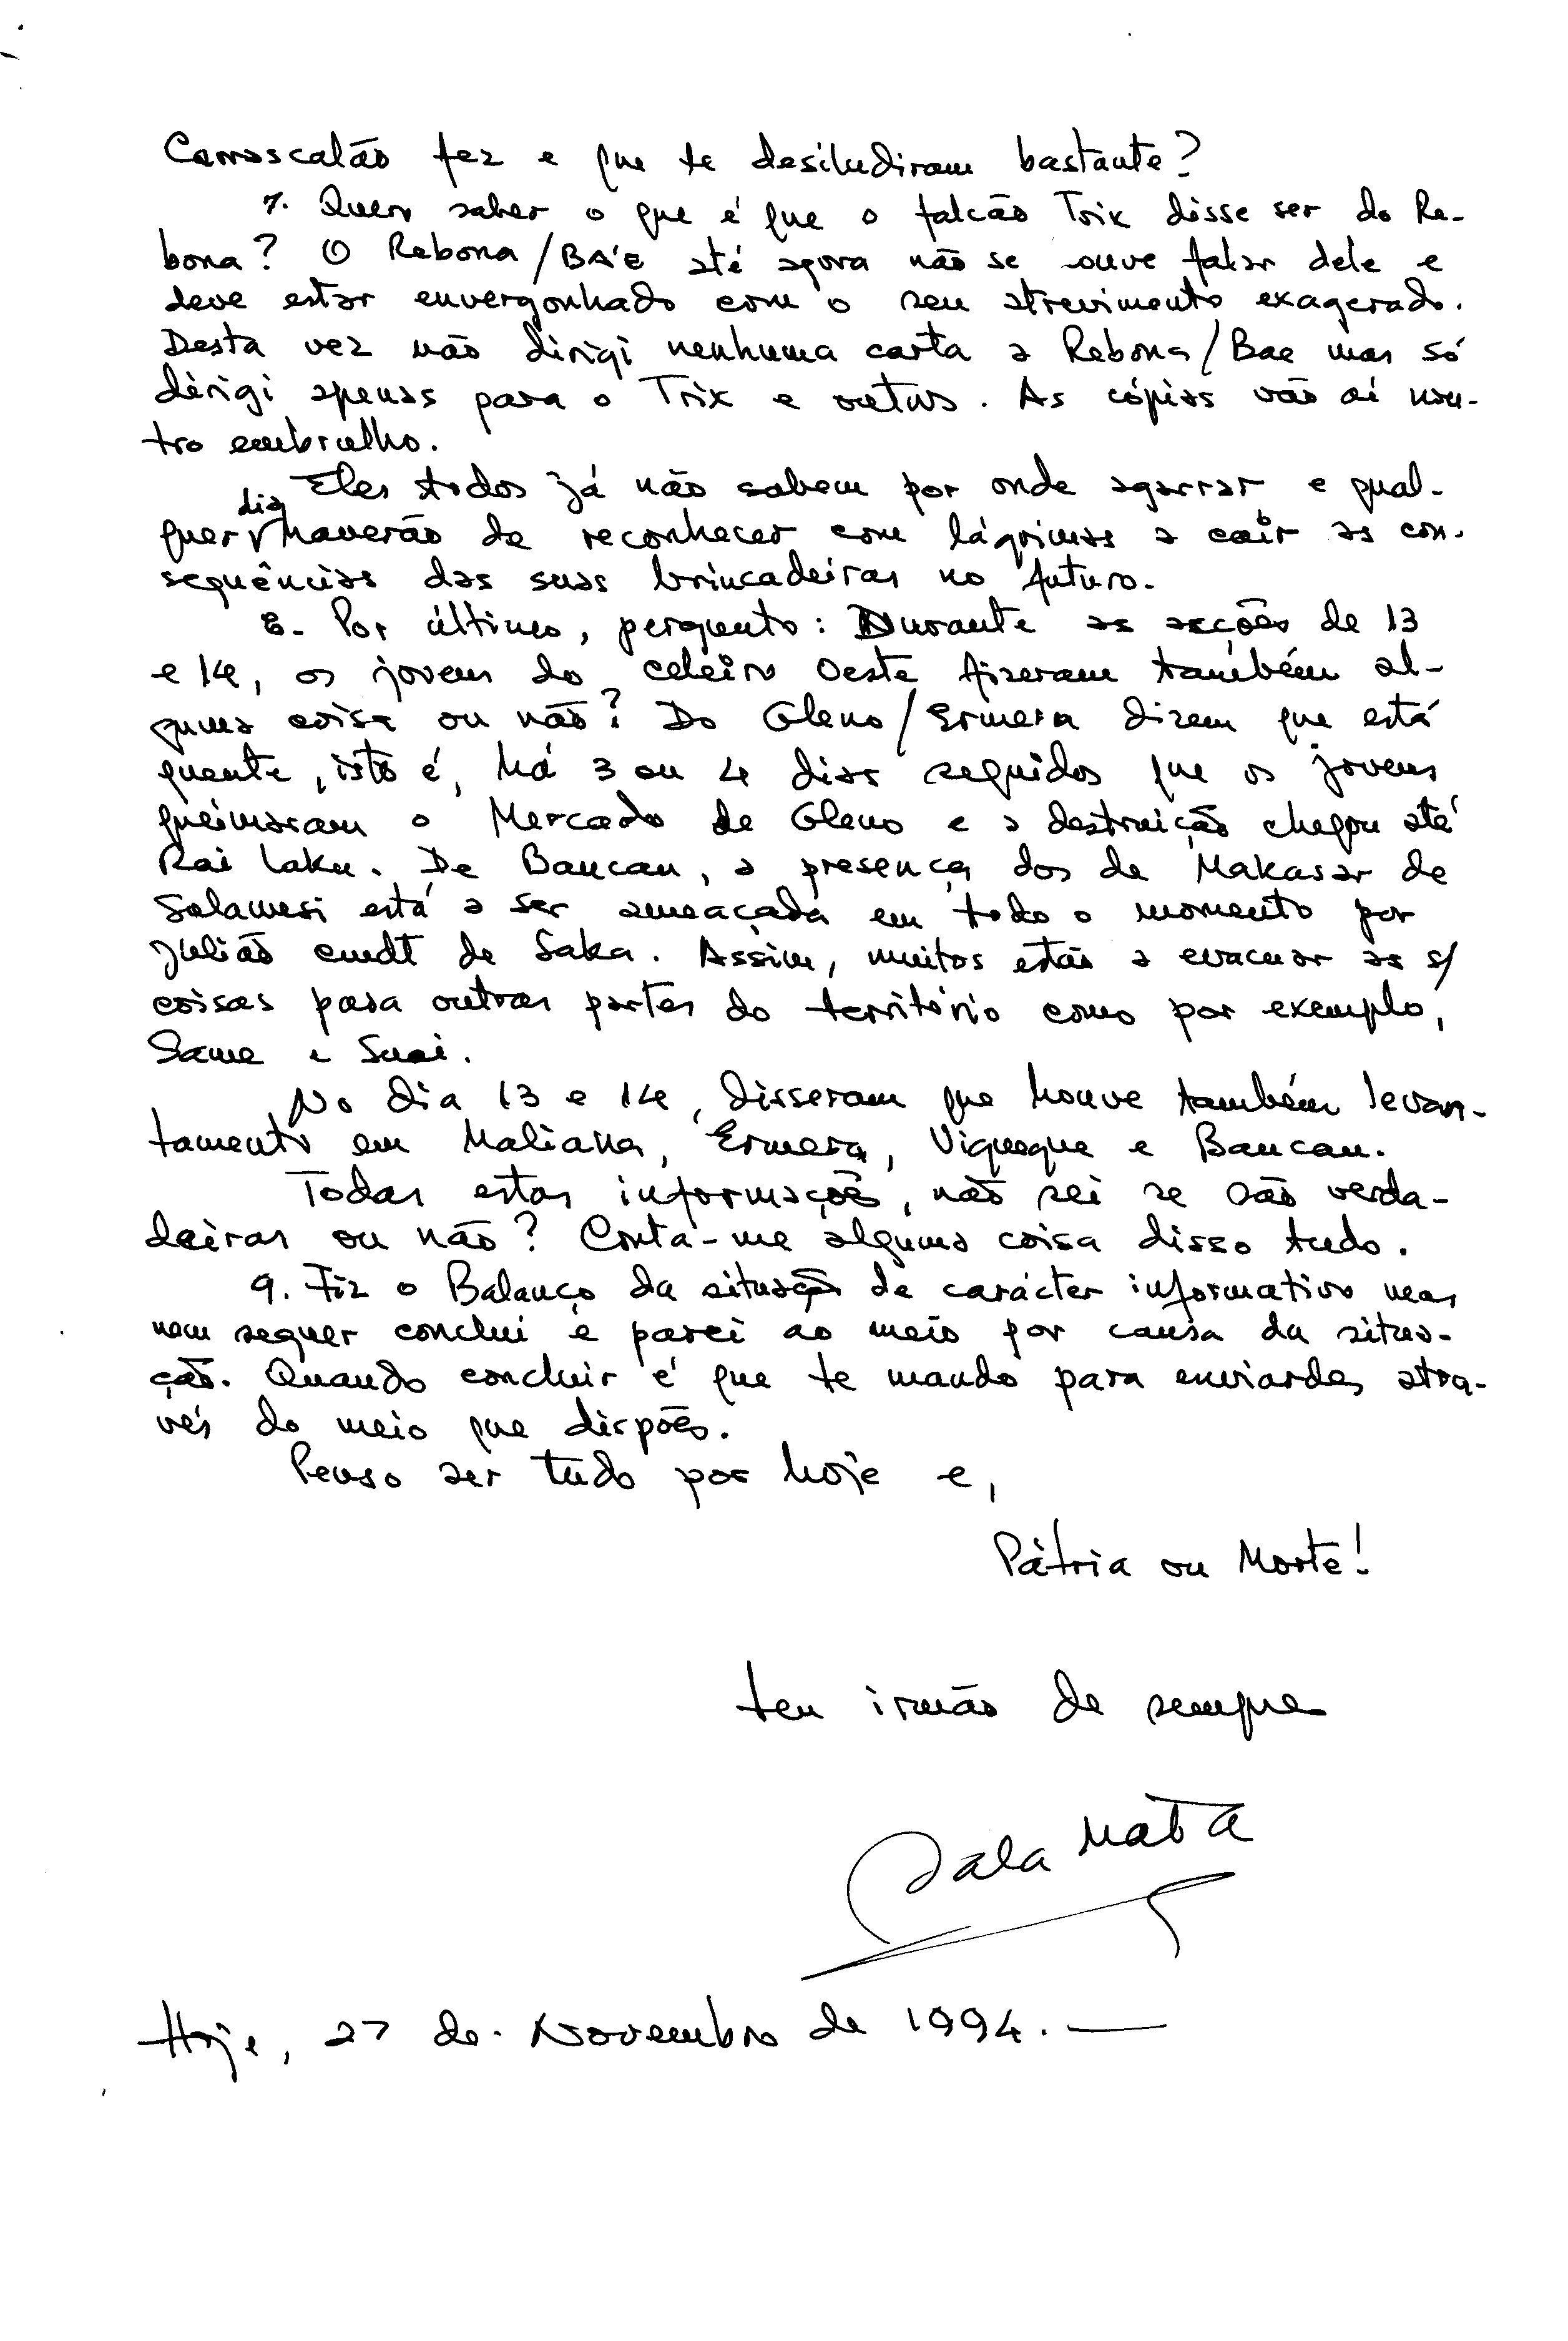 Carrascalão fez e que te desiludiram bastante?
7. Quero saber o que é que o falcão Trix disse ser do Re-
bona? O Rebona/BA'E até agora não se ouve falar dele e
deve estar envergonhado com o seu atrevimento exagerado.
Desta vez não dirigi nenhuma carta a Rebona/Bae mas só
dirigi apenas para o Trix e outros. As cópias vão aí nou-
tro embrulho.
Eles todos já não sabem por onde agarrar e qual-
quer dia haverão de reconhecer com lágrimas a cair as con-
sequências das suas brincadeiras no futuro.
8. Por último, pergunto: Durante as acções de 13
e 14, os jovens do celeiro Oeste fizeram também al-
guma coisa ou não? Do Gleno/Ermera dizem que está
quente, isto é, há 3 ou 4 dias seguidos que os jovens
queimaram o Mercado de Gleno e a destruição chegou até
Rai laku. De Baucau, a presença dos de Makasar de
Salawesi está a ser ameaçada em todo o momento por
Julião cmdt de Saka. Assim, muitos estão a evacuar as s/
coisas para outras partes do território como por exemplo,
Same e Suai.
No dia 13 e 14, disseram que houve também levan-
tamento em Maliana, Ermera, Viqueque e Baucau.
Todas estas informações, não sei se são verda-
deiras ou não? Conta-me alguma coisa disso tudo.
9. Fiz o Balanço da situação de carácter informativo mas
nem sequer conclui e parei ao meio por causa da situa-
ção. Quando concluir é que te mando para enviardes atra-
vés do meio que dispões.
Penso ser tudo por hoje e,
Pátria ou Morte!
teu irmão de sempre
Sala Mata
Hoje, 27 de Novembro de 1994.—